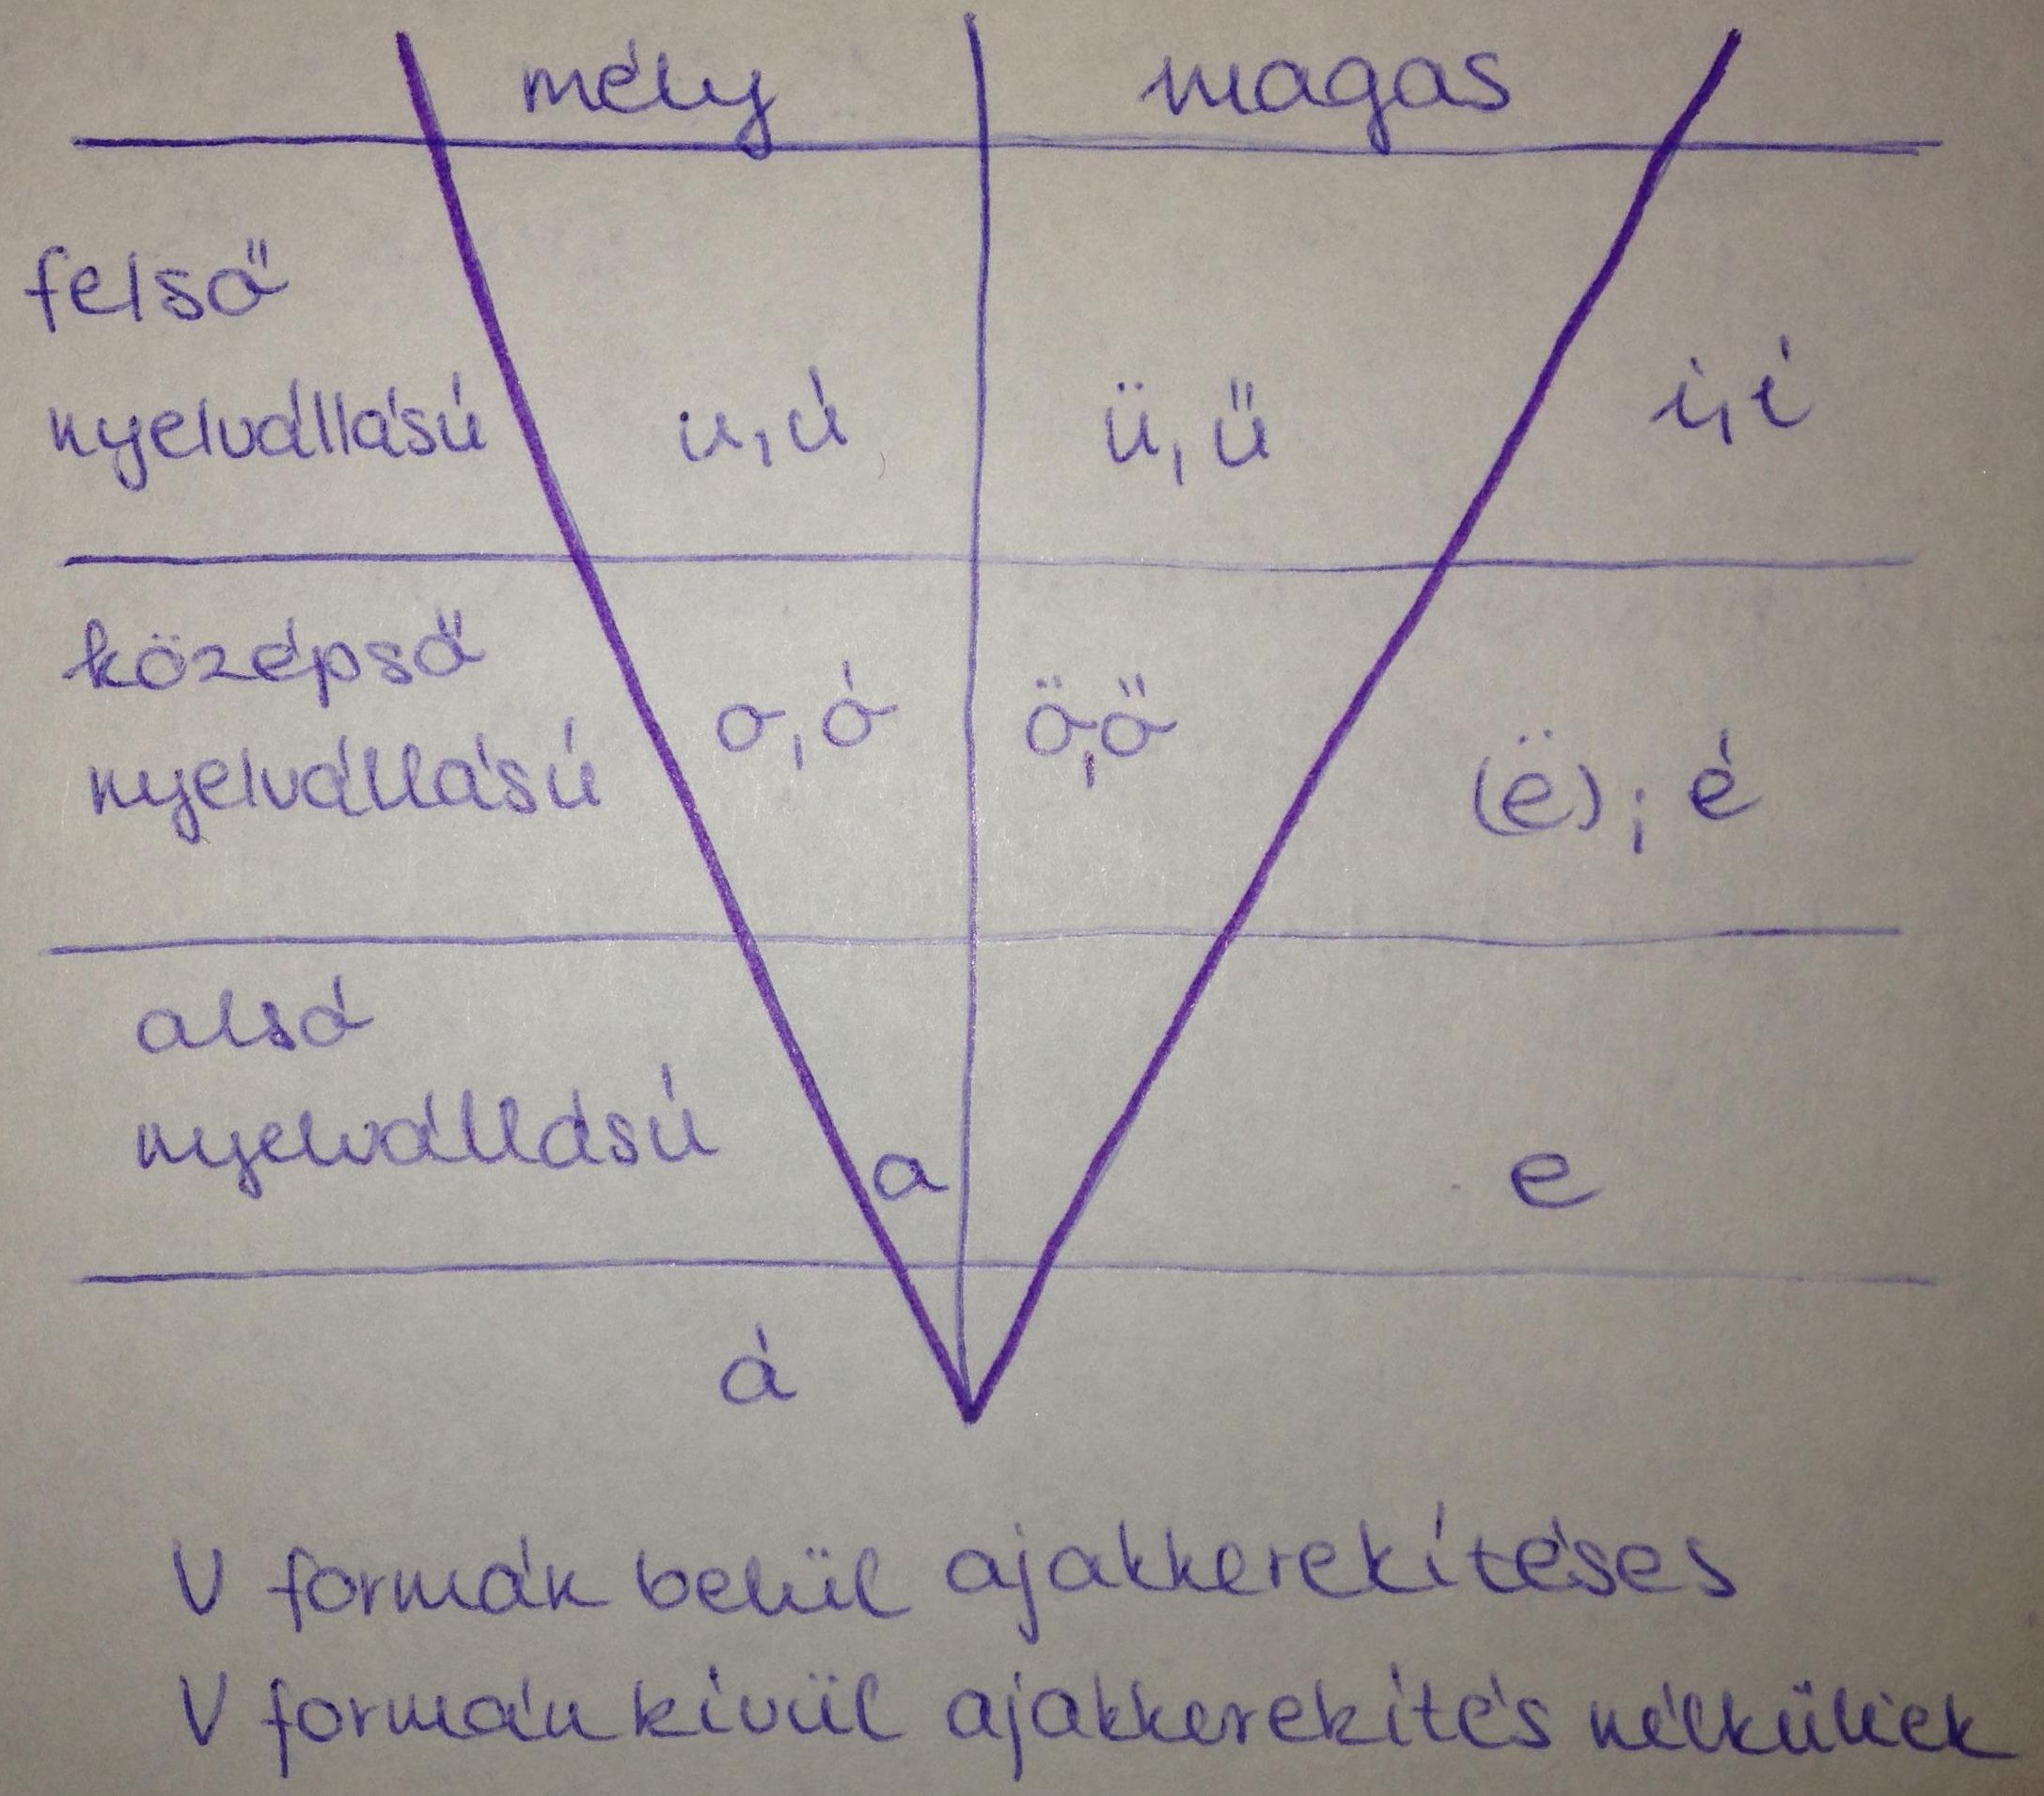 mély magas
felső
nyelvállású u, ú ü, ű i, í
középső
nyelvállású o, ó ö, ő (ë); é
alsó
nyelvállású a e
á
V formán belül ajakkerekítéses
V formán kívül ajakkerekítés nélküliek